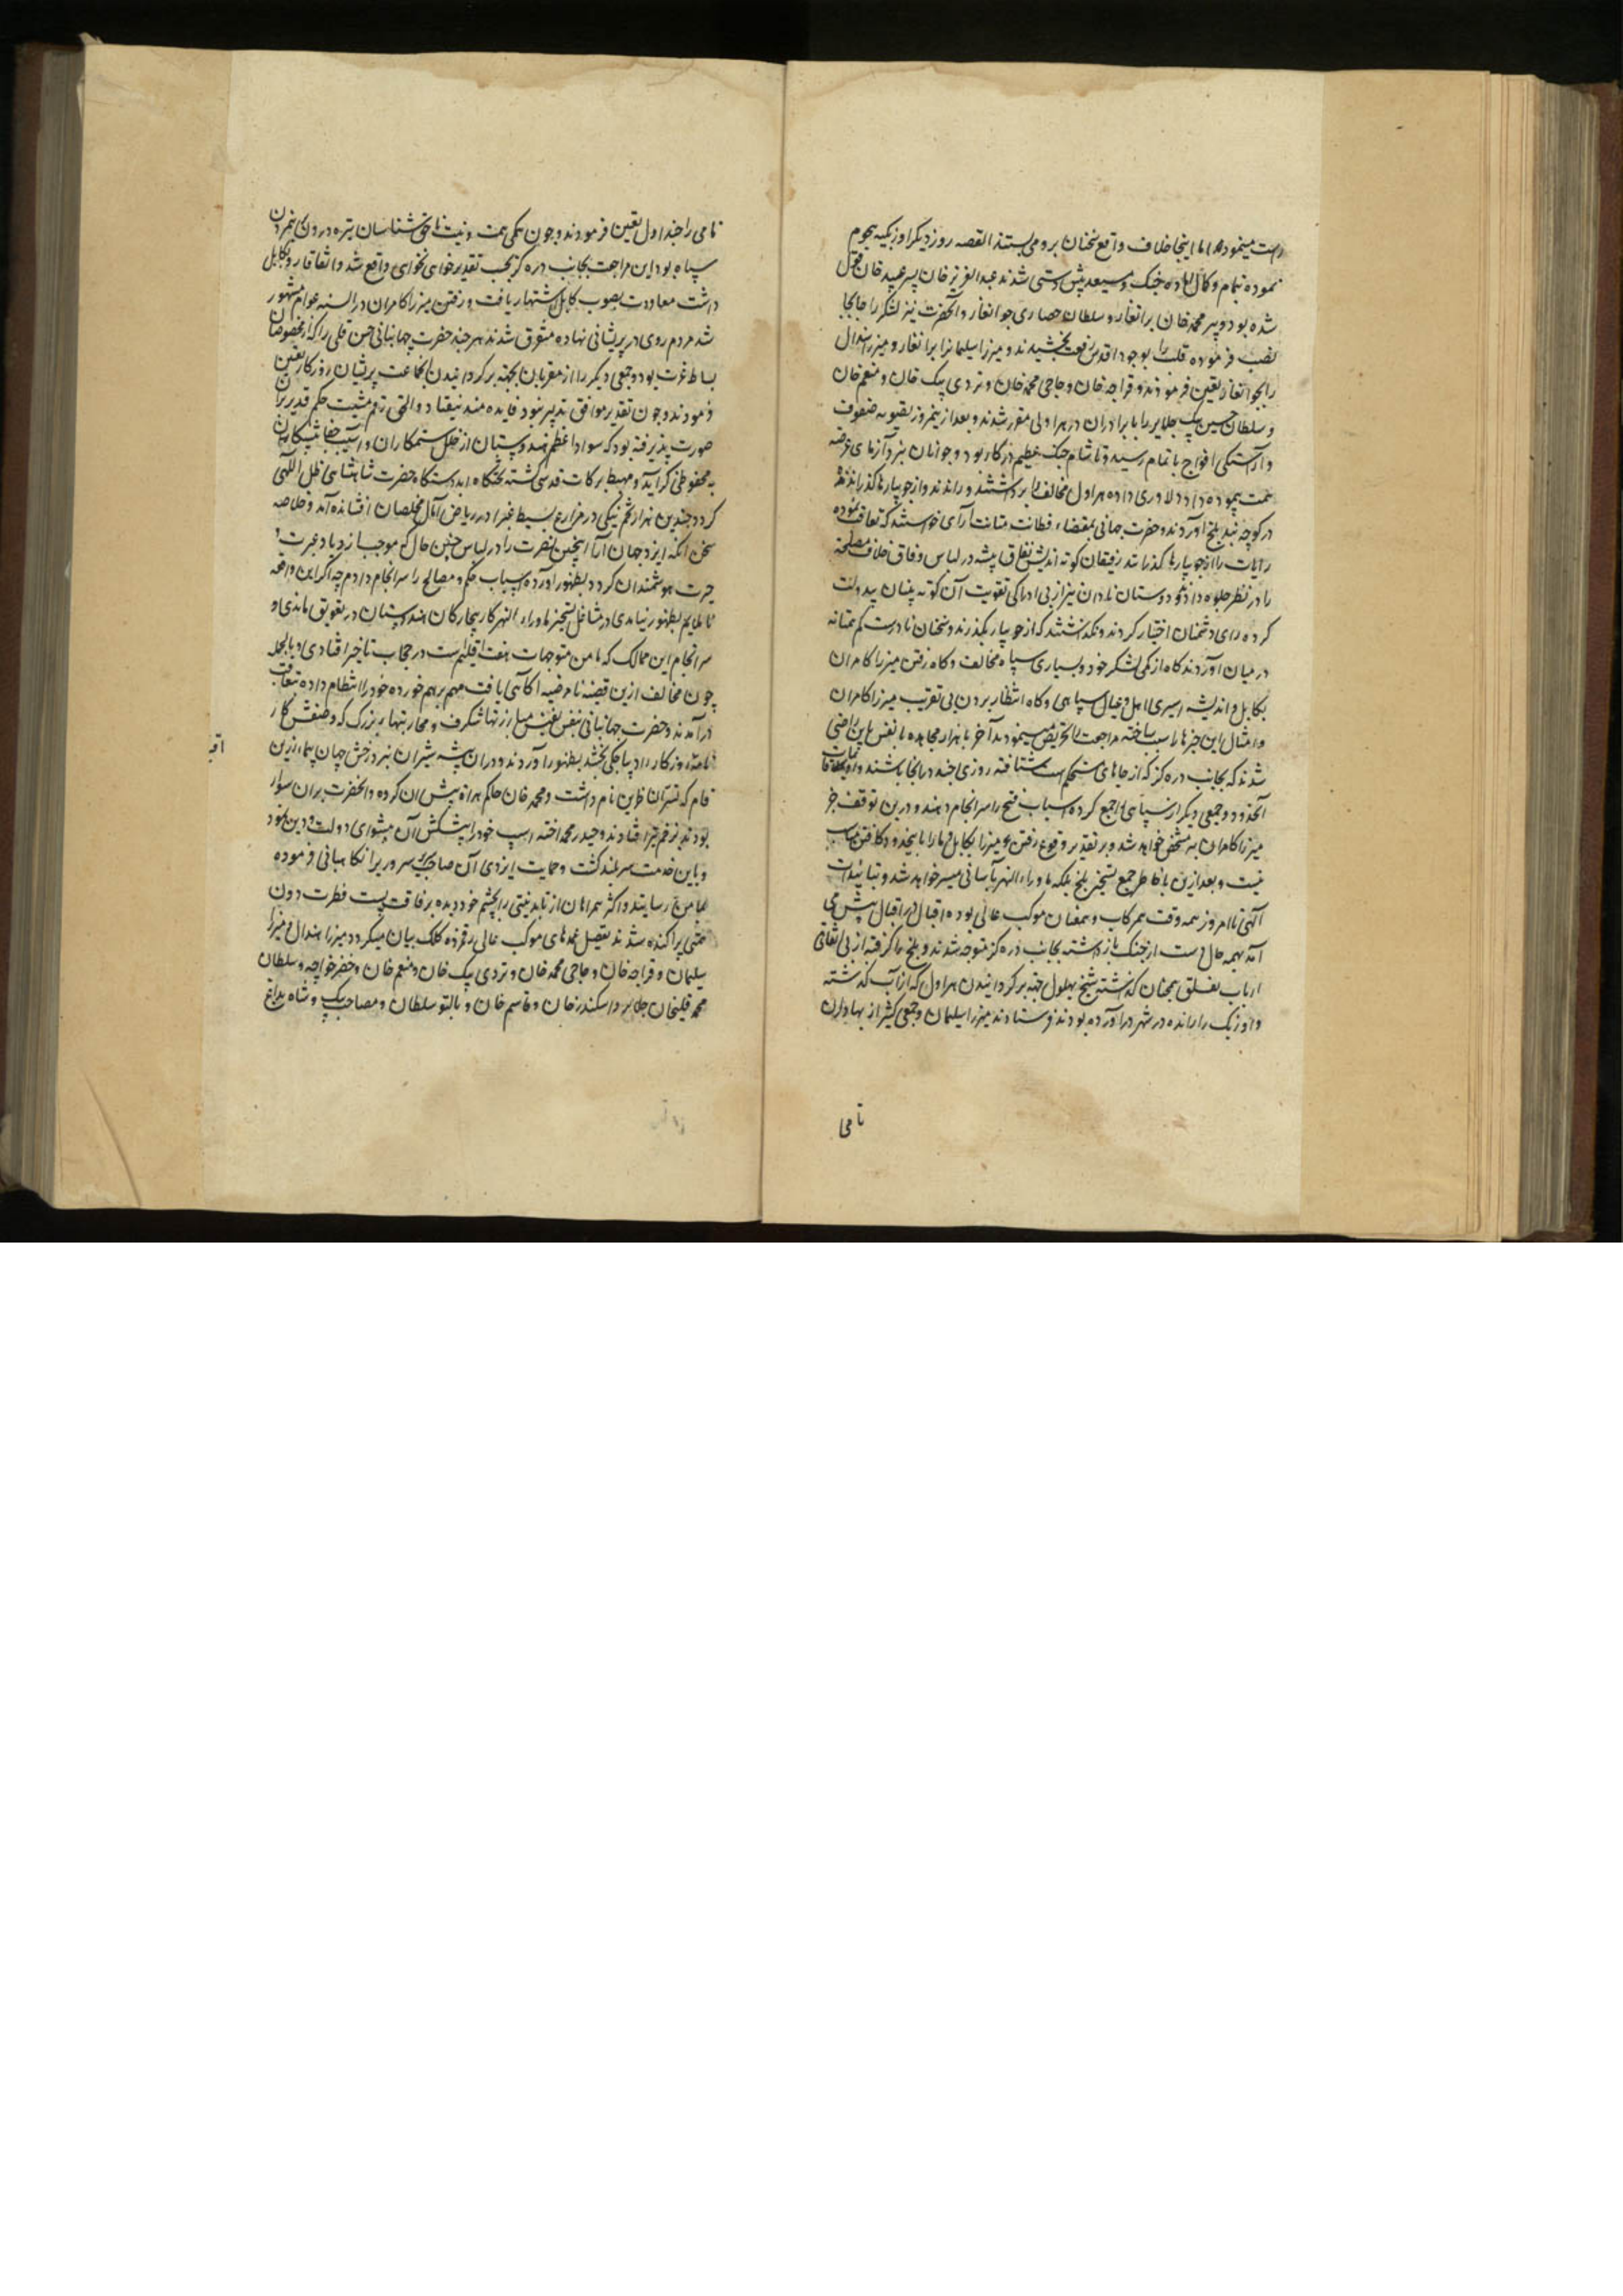 درست مینمود اما اینجا خلاف واقع سخنان برو می بستند القصه روز دیگر اوزبکیه هجوم
نموده بتمام و کمال آماده جنگ و مستعد پیش دستی شدند عبدالعزیز خان پسر عبید خان قول
شده بود و پیر محمد خان برانغار و سلطان حصاری جوانغار و آنحضرت نیز لشکر را جابجا
نصب فرموده قلب را بوجود اقدس رفعت بخشیدند و میرزا سلیمانرا برانغار و میرزا هندال
را بجوانغار تعین فرمودند و قراجه خان و حاجی محمد خان و تردی بیک خان و منعم خان
و سلطان حسین بیک جلایر را با برادران در هراولی مقرر شدند و بعد از نیمروز تسویه صفوف
و آراستگی افواج باتمام رسید و تا شام جنگ عظیم در کار بود و جوانان نبرد آزمای عرصه
همت پیموده داد دلاوری داده هراول مخالف را برداشتند و راندند و از جویبارها گذرانده
در کوچه بند بلخ آوردند و حضرت جهانبانی بمقتضاء فطانت متانت آرای خواستند که تعاقب نموده
رایات را از جویبارها گذرانند رفیقان کوته اندیش نفاق پیشه در لباس وفاق خلاف مصلحت
را در نظر جلوه دادند و دوستان نادان نیز از بی ادراکی تقویت آن کوته بینان بیدولت
کرده رای دشمنان اختیار کردند و نگذاشتند که از جویبار بگذرند و سخنان نادرست کم همتانه
در میان آوردند گاه از کمی لشکر خود و بسیاری سپاه مخالف و گاه رفتن میرزا کامران
بکابل و اندیشه اسیری اهل و عیال سپاهی و گاه انتظار بردن بی تقریب میرزا کامران
و امثال این چیزها را سبب ساخته مراجعت را تحریص مینمودند آخر با هزار مجاهده با نفس باین راضی
شدند که بجانب دره گز که از جاهای مستحکم است شتافته روزی چند در انجا باشند و اویماقات
آنحدود و جمعی دیگر از سپاهی را جمع کرده اسباب فتح را سرانجام دهند و درین توقف خبر
میرزا کامران به مشخص خواهد شد و بر تقدیر وقوع رفتن میرزا بکابل ما را باینحدود کار رفتن مناسب
نیست و بعد ازین بخاطر جمع تسخیر بلخ بلکه ماوراءالنهر بآسانی میسر خواهد شد و بتائیدات
آلهی تا امروز همه وقت همرکاب و همعنان موکب عالی بوده اقبال در اقبال پیش می
آمد بهمه حال دست از جنگ بازداشته بجانب دره گز متوجه شدند و بلخ را گرفته از بی اتفاقی
ارباب نفاق همچنان گذاشته شیخ بهلول جهة برگردانیدن هراول که از آب گذشته
و اوزبک را رانده در شهر درآورده بودند فرستادند میرزا سلیمان و جمعی کثیر از بهادران
نامی
نامی را چنداول تعین فرمودند و چون همگی همت و نیت ناحق شناسان تیره درون بی همزدن
سپاه بود این مراجعت بجانب دره گز بحسب تقدیر خواهی نخواهی واقع شد و اتفاقا رو بکابل
داشت معاودت بصوب کابل اشتهار یافت و رفتن میرزا کامران در السنه عوام مشهور
شد مردم روی در پریشانی نهاده متفرق شدند هر چند حضرت جهانبانی حسن قلی را که از مخصوصان
بساط عزت بود و جمعی دیگر را از مقربان بجهته برگردانیدن جماعت پریشان روزگار تعین
فرمودند و چون تقدیر موافق تدبیر نبود فایده مند نیفتاد و الحق رقم مشیت حکم قدیر بران
صورت پذیرفته بود که سواد اعظم هندوستان از خلل ستمکاران و آسیب جفا پیشگان
به محفوظی گراید و مهبط برکات قدسی گشته تختگاه ابد دستگاه حضرت شاهنشاهی ظل اللهی
گردد چندین هزار تخم نیکی در مزارع بسیط غبرا در ریاض آمال مخلصان افشانده آید و خلاصه
سخن آنکه ایزد جهان آرا اینچنین نصرت را در لباس چنین حال که موجب ازدیاد عبرت و
حیرت هوشمندان گردد بظهور آورده اسباب حکم و مصالح را سرانجام داد چه اگر این واقعه
ناملایم بظهور نیامدی در مشاغل تسخیر ماوراءالنهر کار بیچارگان هندوستان در تعویق ماندی و
سرانجام این ممالک که مامن متوجهات هفت اقلیم است در حجاب تاخیر افتادی و بالجمله
چون مخالف ازین قضیه نامرضیه آگاهی یافت مهم برهم خورده خود را انتظام داده بتعاقب
درآمدند و حضرت جهانبانی بنفس نفیس مبارزتهاء شگرف و محاربتهاء بزرگ که وصفش کار
نامه روزگار را دیباجگی بخشد بظهور آوردند و دران بیشه شیران نبرد رخش جهان پیماء زرین
فام که تسرّ الناظرین نام داشت و محمد خان حاکم هرات پیش ان کرده و آنحضرت بران سوار
بودند بزخم تیر افتاد و حیدر محمد اخته اسپ خود را پیشکش آن پیشوای دولت و دین نمود
و باین خدمت سربلند گشت و حمایت ایزدی آن صاحب سروری را نگاهبانی فرموده
بمامن رسانید و اکثر همراهان از نابدنیتی را بچشم خود دیده برفاقت پست فطرت دون
همتی پراکنده شدند تفصیل عمدهای موکب عالی رقمزده کلک بیان میگردد میرزا هندال و میرزا
سلیمان و قراجه خان و حاجی محمد خان و تردی بیک خان و منعم خان و خضر خواجه و سلطان
محمد قلیخان جلایر و اسکندر خان و قاسم خان و بالتو سلطان و مصاحب بیک و شاه بداغ